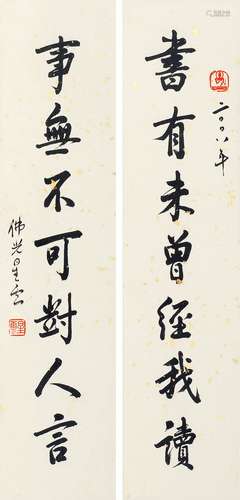 二〇〇八年
書有未曾經我讀
事無不可對人言
佛光星雲